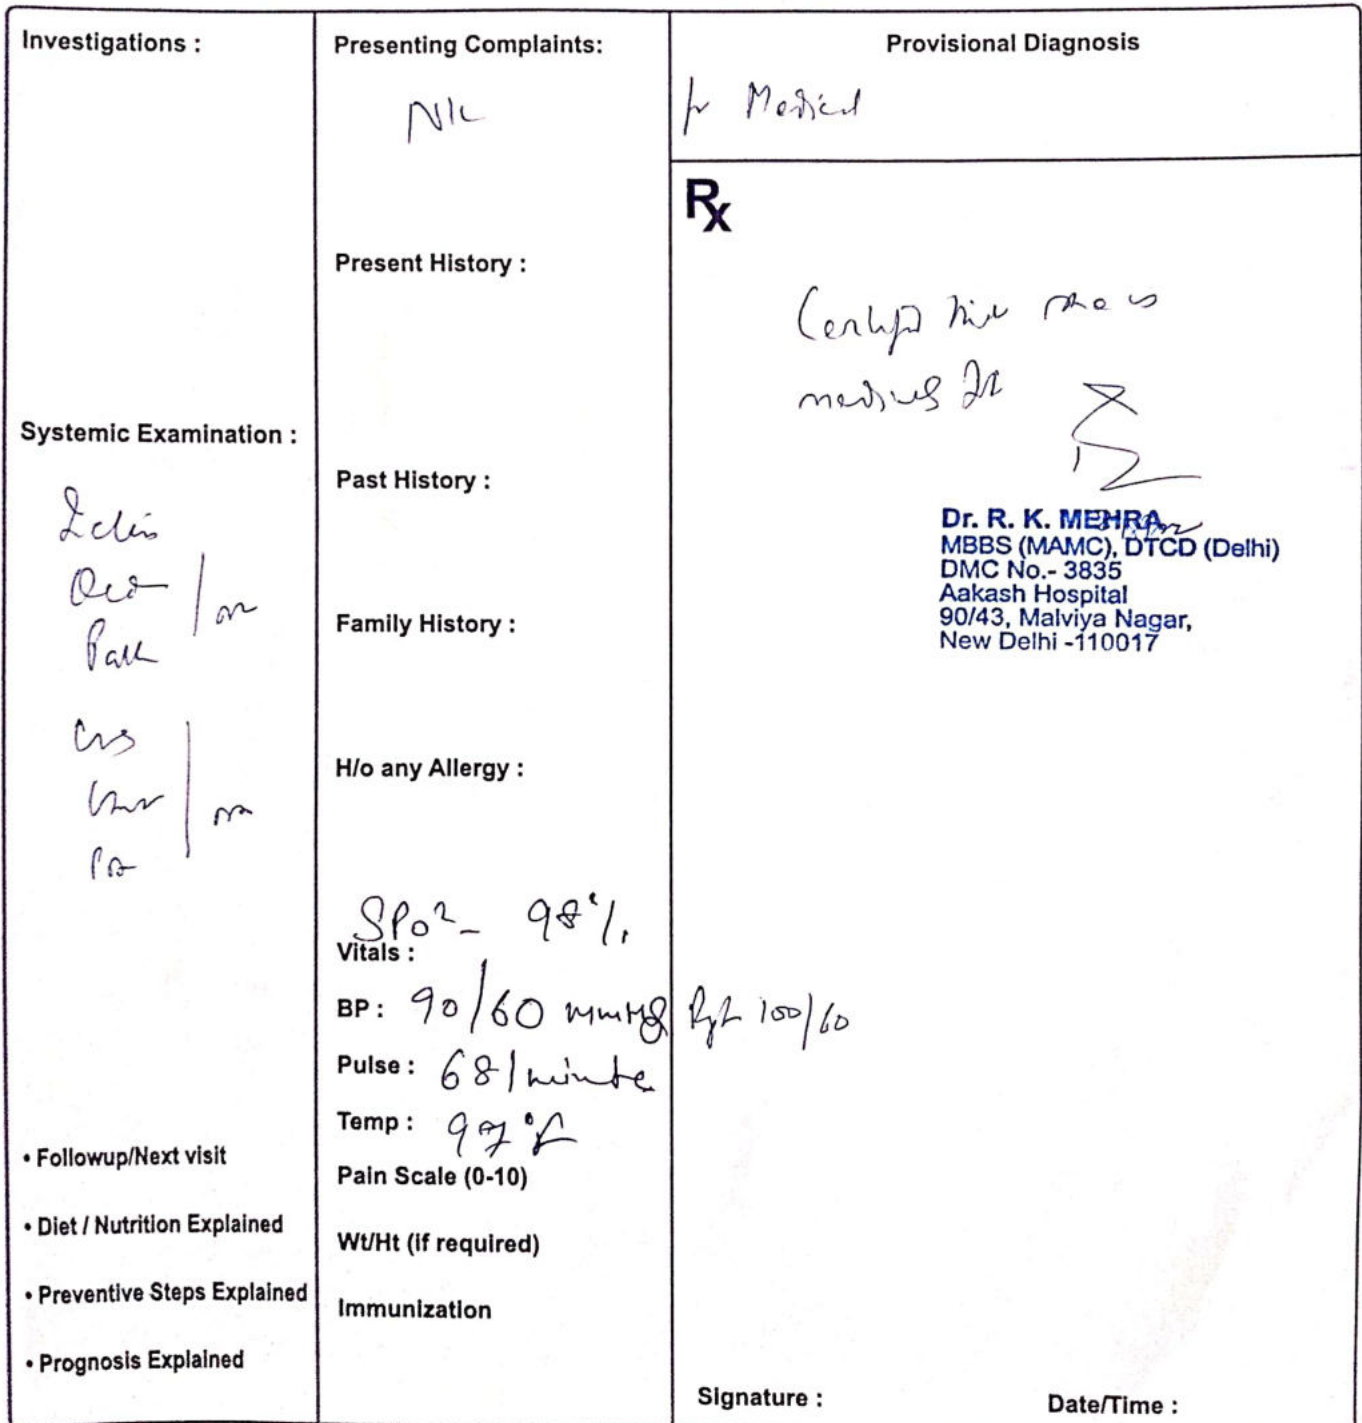 Investigations :
Systemic Examination :
CVS
• Followup/Next visit
• Diet / Nutrition Explained
• Preventive Steps Explained
• Prognosis Explained
Presenting Complaints:
Nil
Present History :
Past History :
Family History :
H/o any Allergy :
SPO2 - 98%
Vitals :
BP : 90/60 mmHg Rpt 100/60
Pulse : 68/minute
Temp : 97°F
Pain Scale (0-10)
Wt/Ht (if required)
Immunization
Provisional Diagnosis
for Medical
Rx
she is
Dr. R. K. MEHRA
MBBS (MAMC), DTCD (Delhi)
DMC No.- 3835
Aakash Hospital
90/43, Malviya Nagar,
New Delhi -110017
Signature :
Date/Time :